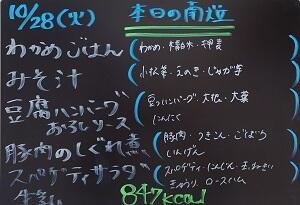 10/28(火) 本日の南燈
わかめごはん (わかめ・精白米・押麦
みそ汁 (小松菜・えのき・じゃが芋
豆腐ハンバーグ (豆フハンバーグ・大根・大葉
おろしソース にんにく
豚肉のしぐれ煮 (豚肉・つきこん・ごぼう
いんげん
スパゲティサラダ (スパゲティ・にんじん・
牛乳 きゅうり ロースハム
847kcal